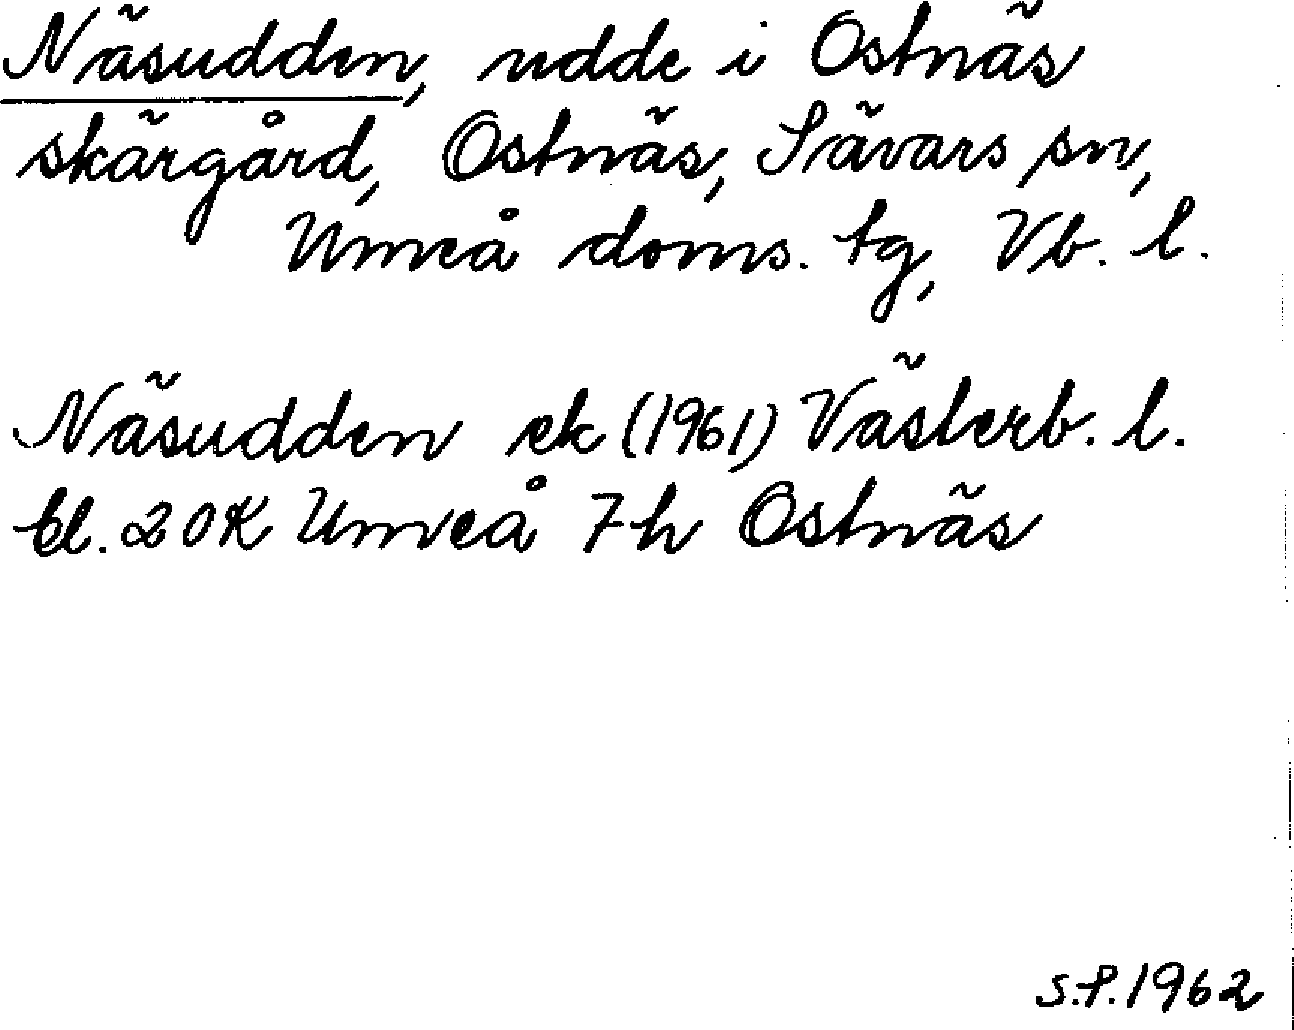 Näsudden, udde i Ostnäs
skärgård, Ostnäs, Sävars sn,
Umeå doms. tg, Vb. l.
Näsudden ek (1961) Västerb. l.
bl. 20K Umeå 7h Ostnäs
S.P. 1962